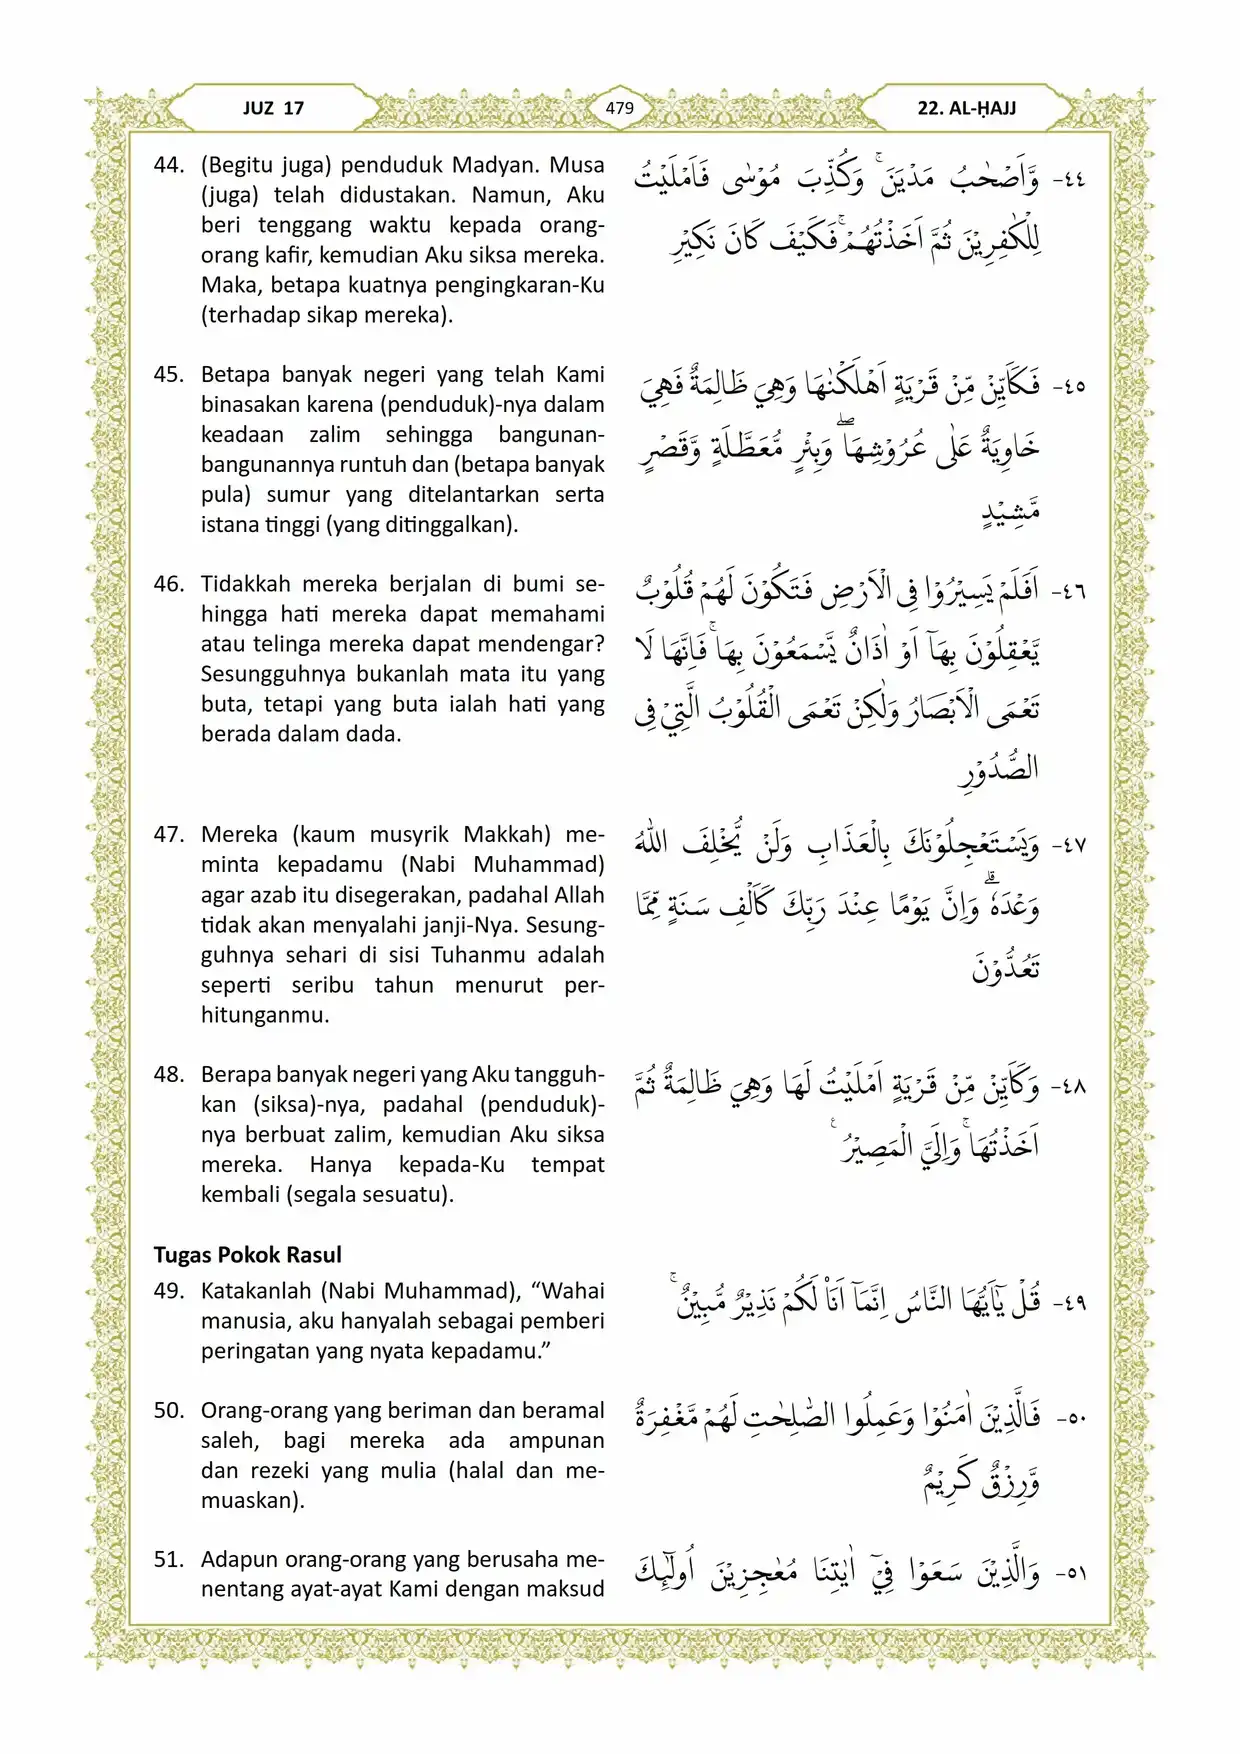 JUZ 17
479
22. AL-ḤAJJ
44. (Begitu juga) penduduk Madyan. Musa
(juga) telah didustakan. Namun, Aku
beri tenggang waktu kepada orang-
orang kafir, kemudian Aku siksa mereka.
Maka, betapa kuatnya pengingkaran-Ku
(terhadap sikap mereka).
٤٤- وَّاَصْحٰبُ مَدْيَنَۚ وَكُذِّبَ مُوْسٰى فَاَمْلَيْتُ
لِلْكٰفِرِيْنَ ثُمَّ اَخَذْتُهُمْۚ فَكَيْفَ كَانَ نَكِيْرِ
45. Betapa banyak negeri yang telah Kami
binasakan karena (penduduk)-nya dalam
keadaan zalim sehingga bangunan-
bangunannya runtuh dan (betapa banyak
pula) sumur yang ditelantarkan serta
istana tinggi (yang ditinggalkan).
٤٥- فَكَاَيِّنْ مِّنْ قَرْيَةٍ اَهْلَكْنٰهَا وَهِيَ ظَالِمَةٌ فَهِيَ
خَاوِيَةٌ عَلٰى عُرُوْشِهَاۖ وَبِئْرٍ مُّعَطَّلَةٍ وَّقَصْرٍ
مَّشِيْدٍ
46. Tidakkah mereka berjalan di bumi se-
hingga hati mereka dapat memahami
atau telinga mereka dapat mendengar?
Sesungguhnya bukanlah mata itu yang
buta, tetapi yang buta ialah hati yang
berada dalam dada.
٤٦- اَفَلَمْ يَسِيْرُوْا فِى الْاَرْضِ فَتَكُوْنَ لَهُمْ قُلُوْبٌ
يَّعْقِلُوْنَ بِهَآ اَوْ اٰذَانٌ يَّسْمَعُوْنَ بِهَاۚ فَاِنَّهَا لَا
تَعْمَى الْاَبْصَارُ وَلٰكِنْ تَعْمَى الْقُلُوْبُ الَّتِيْ فِى
الصُّدُوْرِ
47. Mereka (kaum musyrik Makkah) me-
minta kepadamu (Nabi Muhammad)
agar azab itu disegerakan, padahal Allah
tidak akan menyalahi janji-Nya. Sesung-
guhnya sehari di sisi Tuhanmu adalah
seperti seribu tahun menurut per-
hitunganmu.
٤٧- وَيَسْتَعْجِلُوْنَكَ بِالْعَذَابِ وَلَنْ يُّخْلِفَ اللّٰهُ
وَعْدَهٗۗ وَاِنَّ يَوْمًا عِنْدَ رَبِّكَ كَاَلْفِ سَنَةٍ مِّمَّا
تَعُدُّوْنَ
48. Berapa banyak negeri yang Aku tangguh-
kan (siksa)-nya, padahal (penduduk)-
nya berbuat zalim, kemudian Aku siksa
mereka. Hanya kepada-Ku tempat
kembali (segala sesuatu).
٤٨- وَكَاَيِّنْ مِّنْ قَرْيَةٍ اَمْلَيْتُ لَهَا وَهِيَ ظَالِمَةٌ ثُمَّ
اَخَذْتُهَاۚ وَاِلَيَّ الْمَصِيْرُ ࣖ
Tugas Pokok Rasul
49. Katakanlah (Nabi Muhammad), “Wahai
manusia, aku hanyalah sebagai pemberi
peringatan yang nyata kepadamu.”
٤٩- قُلْ يٰٓاَيُّهَا النَّاسُ اِنَّمَآ اَنَا۠ لَكُمْ نَذِيْرٌ مُّبِيْنٌۚ
50. Orang-orang yang beriman dan beramal
saleh, bagi mereka ada ampunan
dan rezeki yang mulia (halal dan me-
muaskan).
٥٠- فَالَّذِيْنَ اٰمَنُوْا وَعَمِلُوا الصّٰلِحٰتِ لَهُمْ مَّغْفِرَةٌ
وَّرِزْقٌ كَرِيْمٌ
51. Adapun orang-orang yang berusaha me-
nentang ayat-ayat Kami dengan maksud
٥١- وَالَّذِيْنَ سَعَوْا فِيْٓ اٰيٰتِنَا مُعٰجِزِيْنَ اُولٰۤىِٕكَ